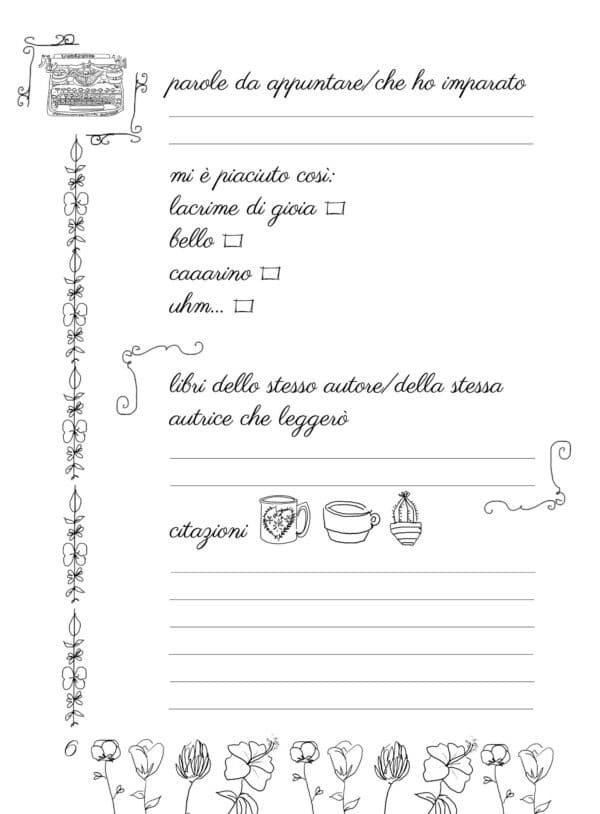 parole da appuntare/che ho imparato
mi è piaciuto così:
lacrime di gioia
bello
caaarino
uhm...
libri dello stesso autore/della stessa
autrice che leggerò
citazioni
6